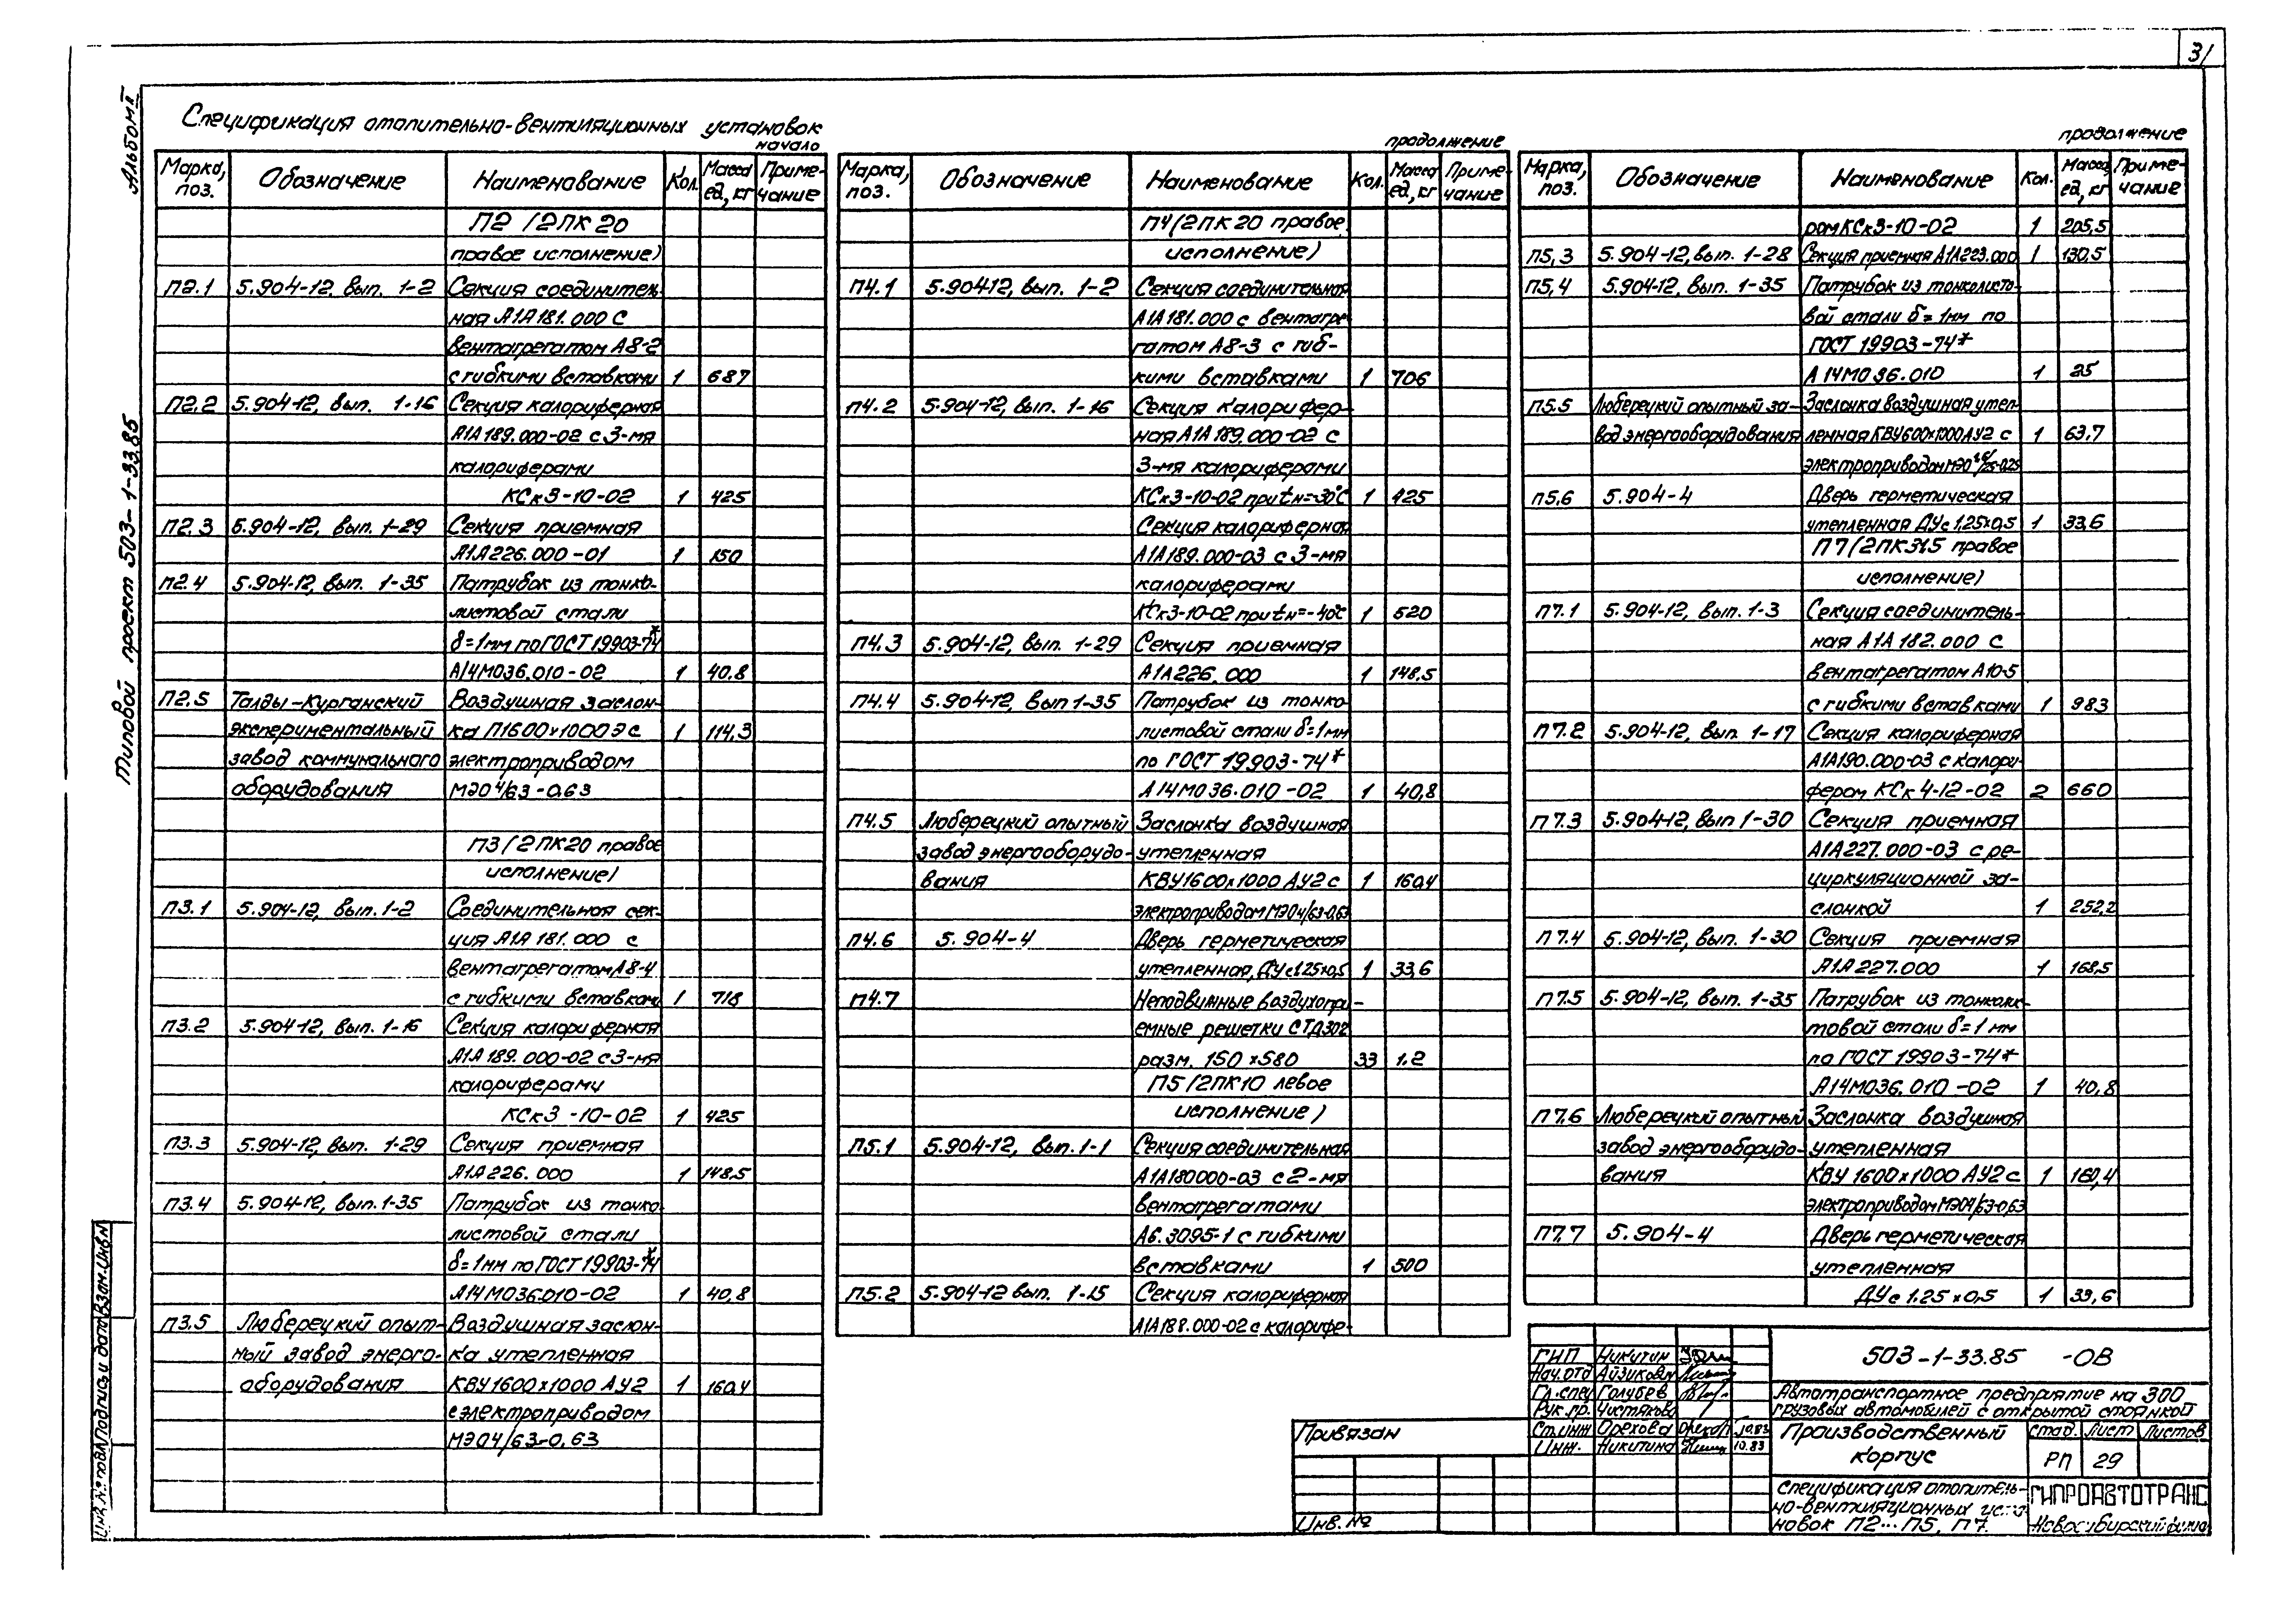 31
Альбом II
Типовой проект 503-1-33.85
Спецификация отопительно-вентиляционных установок
начало
Марка, поз. Обозначение Наименование Кол. Масса ед, кг Примечание
П2 (2ПК20
правое исполнение)
П2.1 5.904-12, вып. 1-2 Секция соединитель-
ная А1А181.000 с
вентагрегатом А8-2
с гибкими вставками 1 687
П2.2 5.904-12, вып. 1-16 Секция калориферная
А1А189.000-02 с 3-мя
калориферами
КСк3-10-02 1 425
П2.3 5.904-12, вып. 1-29 Секция приемная
А1А226.000-01 1 150
П2.4 5.904-12, вып. 1-35 Патрубок из тонко-
листовой стали
δ=1мм по ГОСТ 19903-74*
А14М036.010-02 1 40,8
П2.5 Талды-Курганский Воздушная заслон-
экспериментальный ка П1600х1000Э с 1 114,3
завод коммунального электроприводом
оборудования МЭО4/63-0.63
П3 (2ПК20 правое
исполнение)
П3.1 5.904-12, вып. 1-2 Соединительная сек-
ция А1А181.000 с
вентагрегатом А8-4
с гибкими вставками 1 718
П3.2 5.904-12, вып. 1-16 Секция калориферная
А1А189.000-02 с 3-мя
калориферами
КСк3-10-02 1 425
П3.3 5.904-12, вып. 1-29 Секция приемная
А1А226.000 1 148,5
П3.4 5.904-12, вып. 1-35 Патрубок из тонко-
листовой стали
δ=1мм по ГОСТ 19903-74*
А14М036.010-02 1 40,8
П3.5 Люберецкий опыт- Воздушная заслон-
ный завод энерго- ка утепленная
оборудования КВУ1600х1000 АУ2 1 160,4
с электроприводом
МЭО4/63-0,63
продолжение
Марка, поз. Обозначение Наименование Кол. Масса ед, кг Примечание
П4 (2ПК20 правое
исполнение)
П4.1 5.904-12, вып. 1-2 Секция соединительная
А1А181.000 с вентагре-
гатом А8-3 с гиб-
кими вставками 1 706
П4.2 5.904-12, вып. 1-16 Секция калорифер-
ная А1А189.000-02 с
3-мя калориферами
КСк3-10-02 при tн=-30°С 1 425
Секция калориферная
А1А189.000-03 с 3-мя
калориферами
КСк3-10-02 при tн=-40°С 1 520
П4.3 5.904-12, вып. 1-29 Секция приемная
А1А226.000 1 148,5
П4.4 5.904-12, вып 1-35 Патрубок из тонко-
листовой стали δ=1мм
по ГОСТ 19903-74*
А14М036.010-02 1 40,8
П4.5 Люберецкий опытный Заслонка воздушная
завод энергооборудо- утепленная
вания КВУ1600х1000 АУ2 с 1 160,4
электроприводом МЭО4/63-0,63
П4.6 5.904-4 Дверь герметическая
утепленная, ДУс1.25х0,5 1 33,6
П4.7 Неподвижные воздухопри-
емные решетки СТД302
разм. 150х580 33 1.2
П5 (2ПК10 левое
исполнение)
П5.1 5.904-12, вып. 1-1 Секция соединительная
А1А180000-03 с 2-мя
вентагрегатами
А6.3095-1 с гибкими
вставками 1 500
П5.2 5.904-12 вып. 1-15 Секция калориферная
А1А188.000-02 с калорифе-
продолжение
Марка, поз. Обозначение Наименование Кол. Масса ед, кг Примечание
ром КСк3-10-02 1 205,5
П5,3 5.904-12, вып. 1-28 Секция приемная А1А223.000 1 130,5
П5,4 5.904-12, вып. 1-35 Патрубок из тонколисто-
вой стали δ=1мм по
ГОСТ 19903-74*
А14М036.010 1 25
П5.5 Люберецкий опытный за- Заслонка воздушная утеп-
вод энергооборудования ленная КВУ600х1000АУ2 с 1 63,7
электроприводом МЭО
П5,6 5.904-4 Дверь герметическая
утепленная ДУс 1,25х0,5 1 33,6
П7 (2ПК31.5 правое
исполнение)
П7.1 5.904-12, вып. 1-3 Секция соединитель-
ная А1А182.000 с
вентагрегатом А10-5
с гибкими вставками 1 983
П7.2 5.904-12, вып. 1-17 Секция калориферная
А1А190.000-03 с калори-
фером КСк4-12-02 2 660
П7.3 5.904-12, вып 1-30 Секция приемная
А1А227.000-03 с ре-
циркуляционной за-
слонкой 1 252,2
П7.4 5.904-12, вып. 1-30 Секция приемная
А1А227.000 1 168,5
П7.5 5.904-12, вып. 1-35 Патрубок из тонколис-
товой стали δ=1 мм
по ГОСТ 19903-74*
А14М036.010-02 1 40,8
П7.6 Люберецкий опытный Заслонка воздушная
завод энергооборудо- утепленная
вания КВУ 1600х1000 АУ2 с 1 160,4
электроприводом МЭО4/63-0,63
П7,7 5.904-4 Дверь герметическая
утепленная
ДУс 1.25х0,5 1 33,6
ГИП Никитин
Нач.отд Айзикович
Гл.спец Голубев
Рук.гр. Чистякова
Ст.инж Орехова 10.83
Инж. Никитина 10.83
503-1-33.85 -ОВ
Автотранспортное предприятие на 300
грузовых автомобилей с открытой стоянкой
Производственный
корпус
Стад. Лист Листов
РП 29
Спецификация отопитель-
но-вентиляционных уста-
новок П2...П5, П7.
ГИПРОАВТОТРАНС
Новосибирский филиал
Привязан
Инв. №
Инв. № подл. Подпись и дата Взам. инв. №